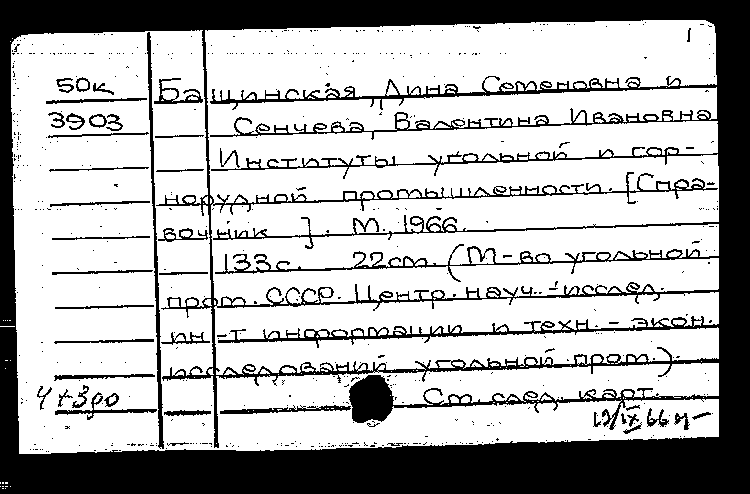 1
50к Бащинская, Дина Семеновна и
3903 Сенчева, Валентина Ивановна
Институты угольной и гор-
норудной промышленности. [Спра-
вочник]. М., 1966.
133с. 22см. (М-во угольной
пром. СССР. Центр. науч.-исслед.
ин-т информации и техн.-экон.
исследований угольной пром.).
Ч+3до См. след. карт.
12/IX 66